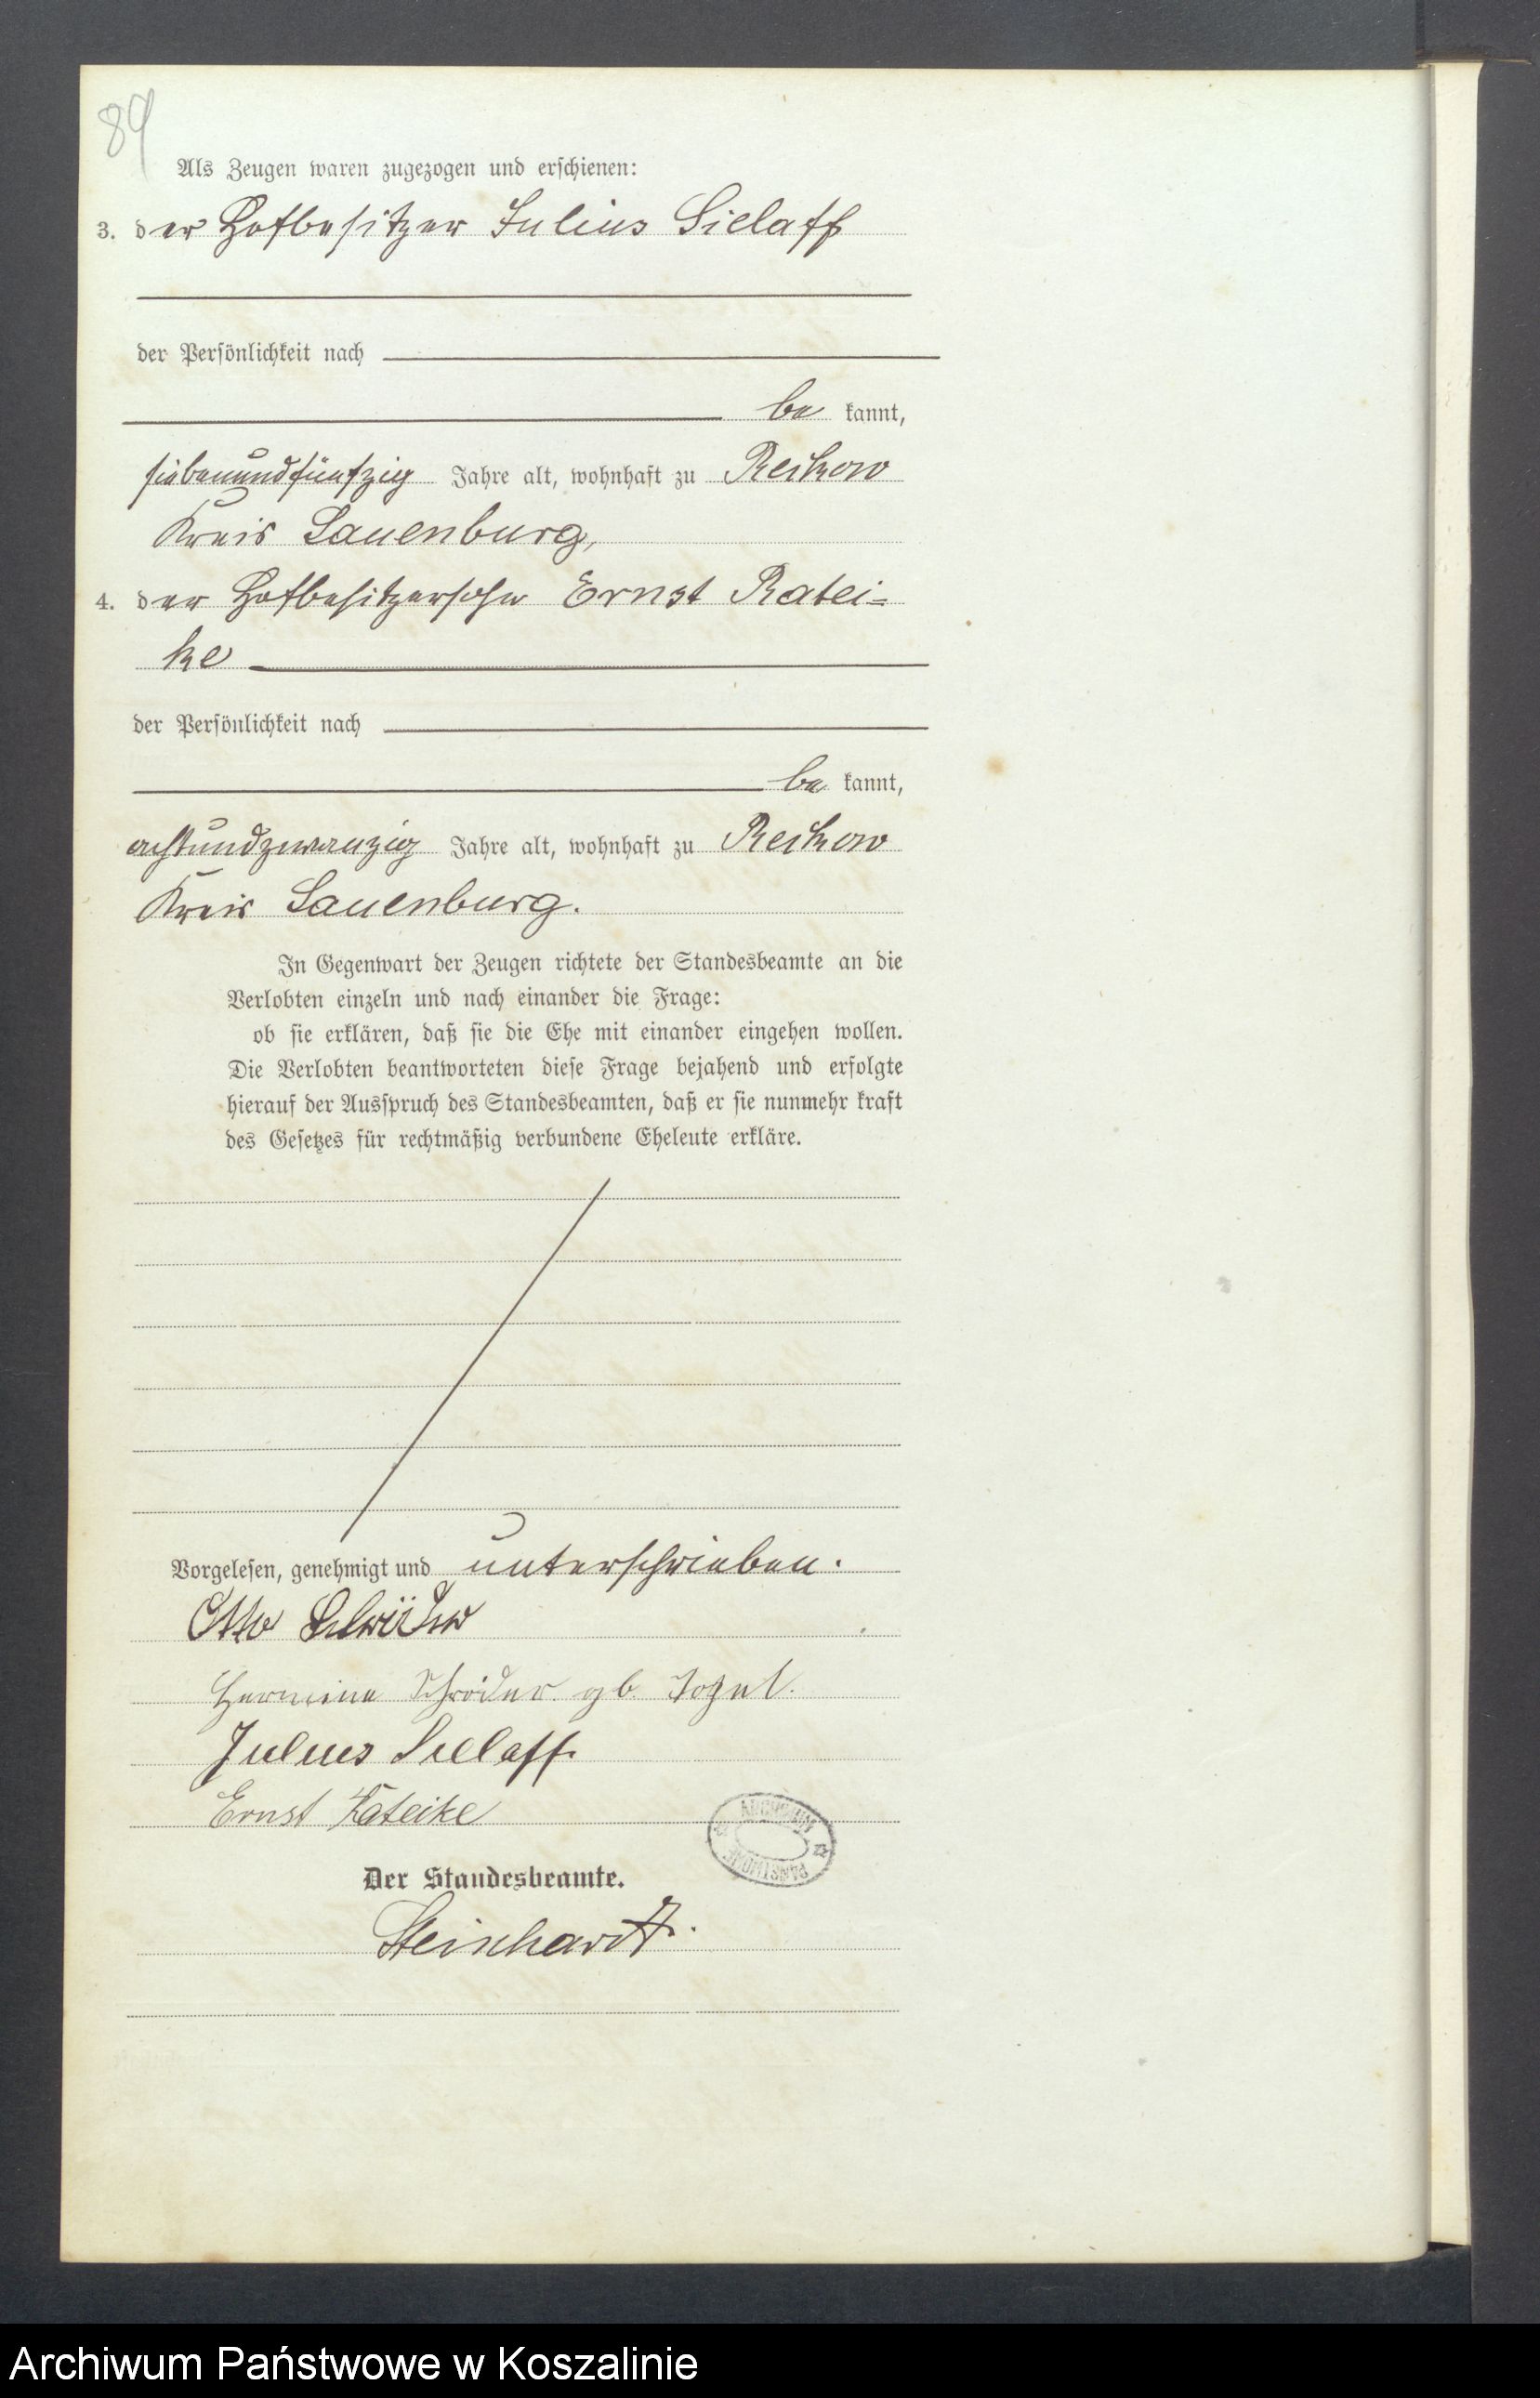 89
Als Zeugen waren zugezogen und erschienen:
3. der Hofbesitzer Julius Sielaff
der Persönlichkeit nach
be kannt,
siebenundfünfzig Jahre alt, wohnhaft zu Reckow
Kreis Lauenburg,
4. der Hofbesitzersohn Ernst Ratei=
ke
der Persönlichkeit nach
be kannt,
achtundzwanzig Jahre alt, wohnhaft zu Reckow
Kreis Lauenburg.
In Gegenwart der Zeugen richtete der Standesbeamte an die
Verlobten einzeln und nach einander die Frage:
ob sie erklären, daß sie die Ehe mit einander eingehen wollen.
Die Verlobten beantworteten diese Frage bejahend und erfolgte
hierauf der Ausspruch des Standesbeamten, daß er sie nunmehr kraft
des Gesetzes für rechtmäßig verbundene Eheleute erkläre.
Vorgelesen, genehmigt und unterschrieben.
Otto
Hermine Schröder gb.
Julius Sielaff
Ernst Rateike
ARCHIWUM PAŃSTWOWE
Der Standesbeamte.
Steinhardt.
Archiwum Państwowe w Koszalinie